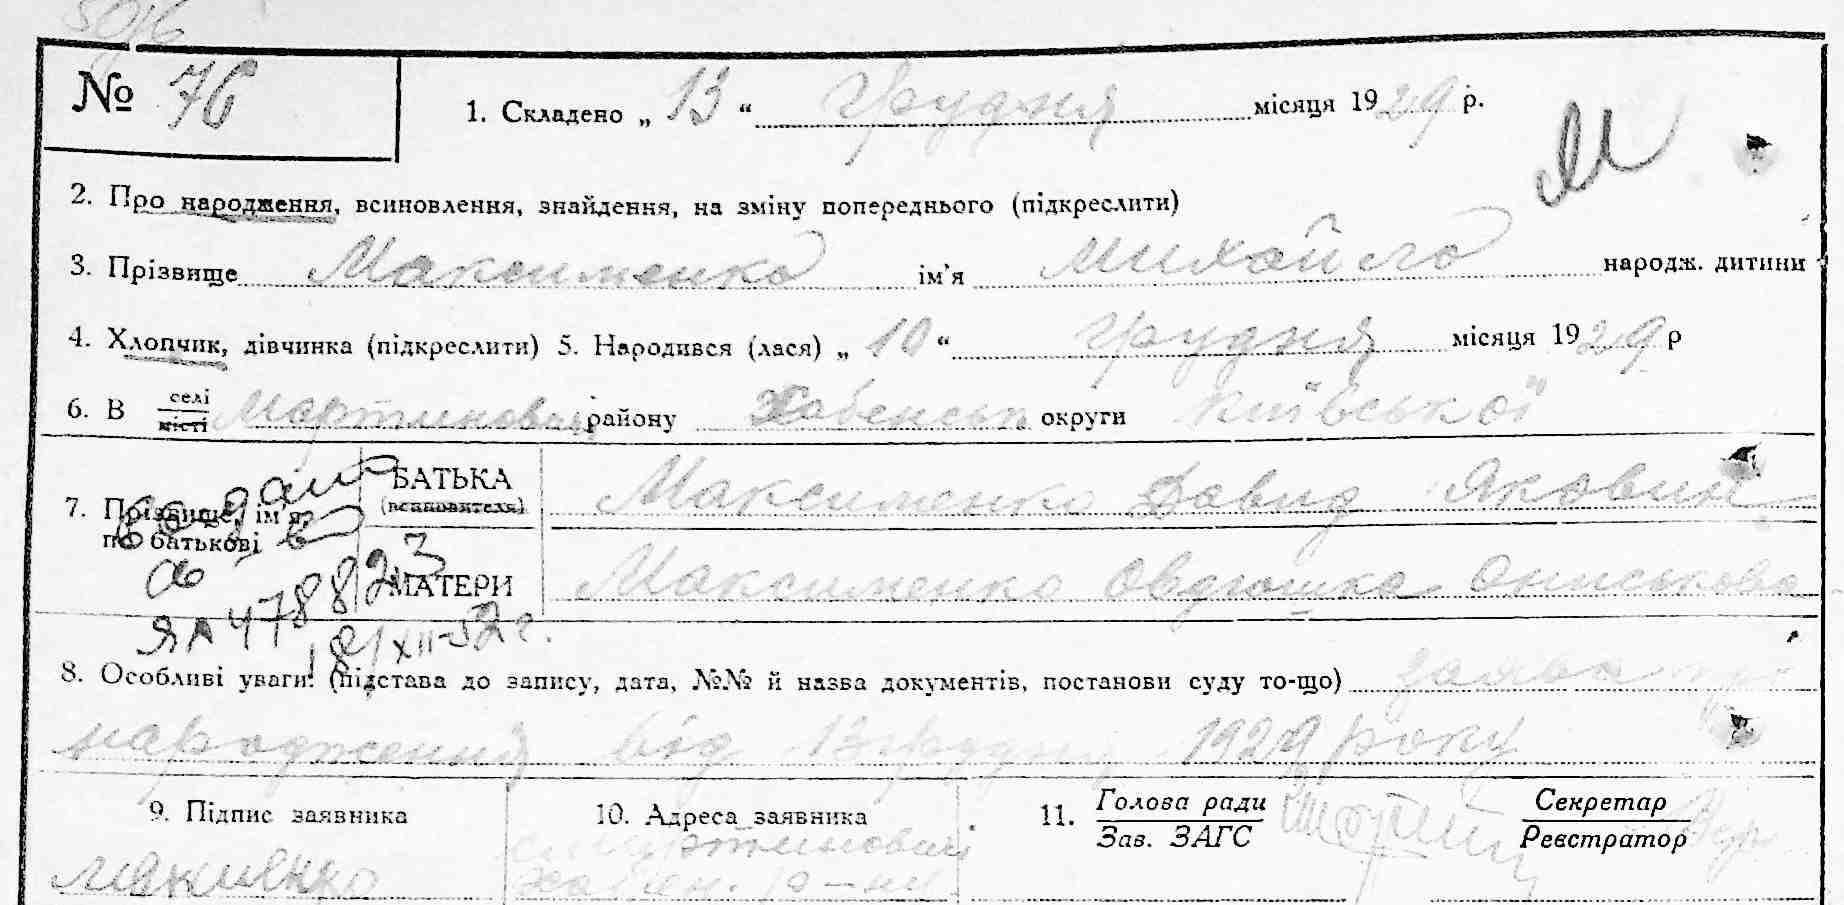 № 76
1. Складено „ 13 “ Грудня місяця 1929 р.
2. Про народження, всиновлення, знайдення, на зміну попереднього (підкреслити)
3. Прізвище Максименко ім'я Михайло народж. дитини
4. Хлопчик, дівчинка (підкреслити) 5. Народився (лася) „ 10 “ Грудня місяця 1929 р
6. В селі місті Мартинович району Хабенськ округи Київської
7. Прізвище, ім'я, по батькові
БАТЬКА (всиновителя) Максименко Давид Якович
МАТЕРИ Максименко Овдюшка Ониськова
ЯА 478823
18/XII-52 г.
8. Особливі уваги: (підстава до запису, дата, №№ й назва документів, постанови суду то-що) заява про
народження від 13 грудня 1929 року
9. Підпис заявника
10. Адреса заявника
11. Голова ради Зав. ЗАГС
Секретар Реєстратор
с. Мартинович
Хабен. р-ну